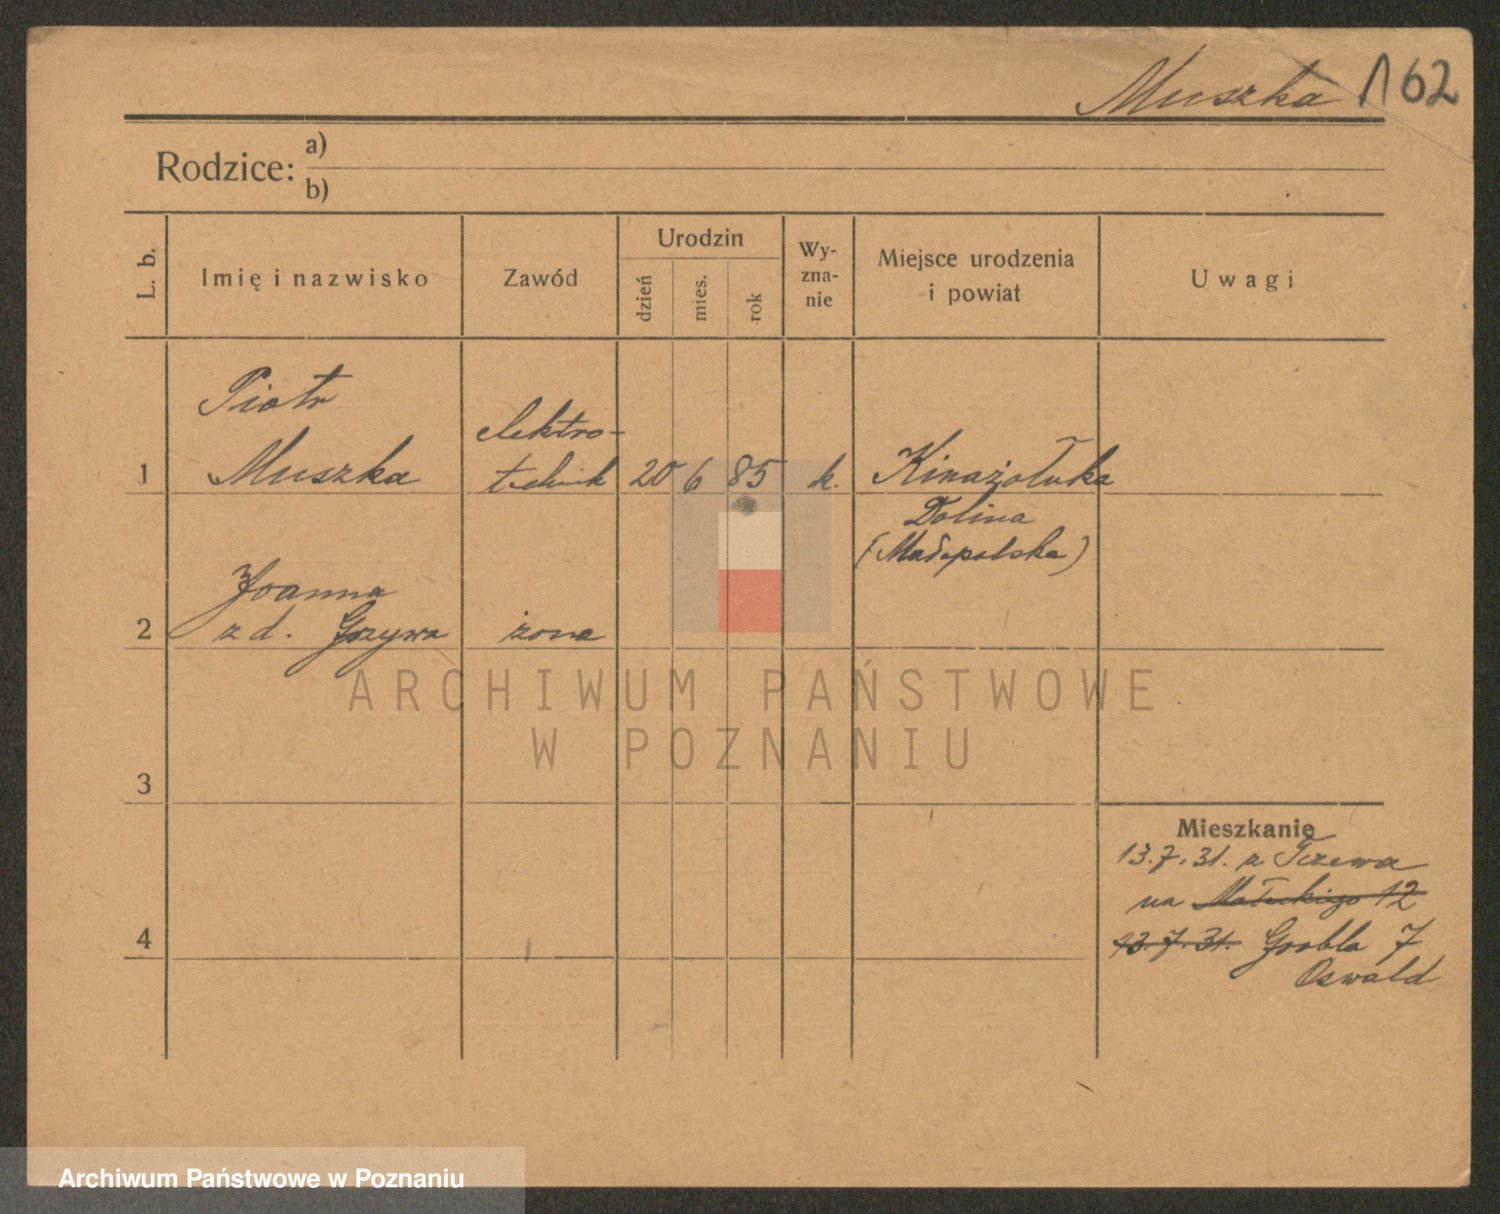 Muszka 162
Rodzice: a)
b)
L. b.
Imię i nazwisko
Zawód
Urodzin
dzień
mies.
rok
Wy-
zna-
nie
Miejsce urodzenia
i powiat
Uwagi
Piotr
elektro-
1 Muszka technik 20 6 85 k. Kinażołuka
Dolina
(Małopolska)
Joanna
2 z d. Grzywa żona
ARCHIWUM PAŃSTWOWE
W POZNANIU
3
Mieszkanie
13.7.31. z Tczewa
na Małeckiego 12
4 13.7.31. Grobla 7
Oswald
Archiwum Państwowe w Poznaniu